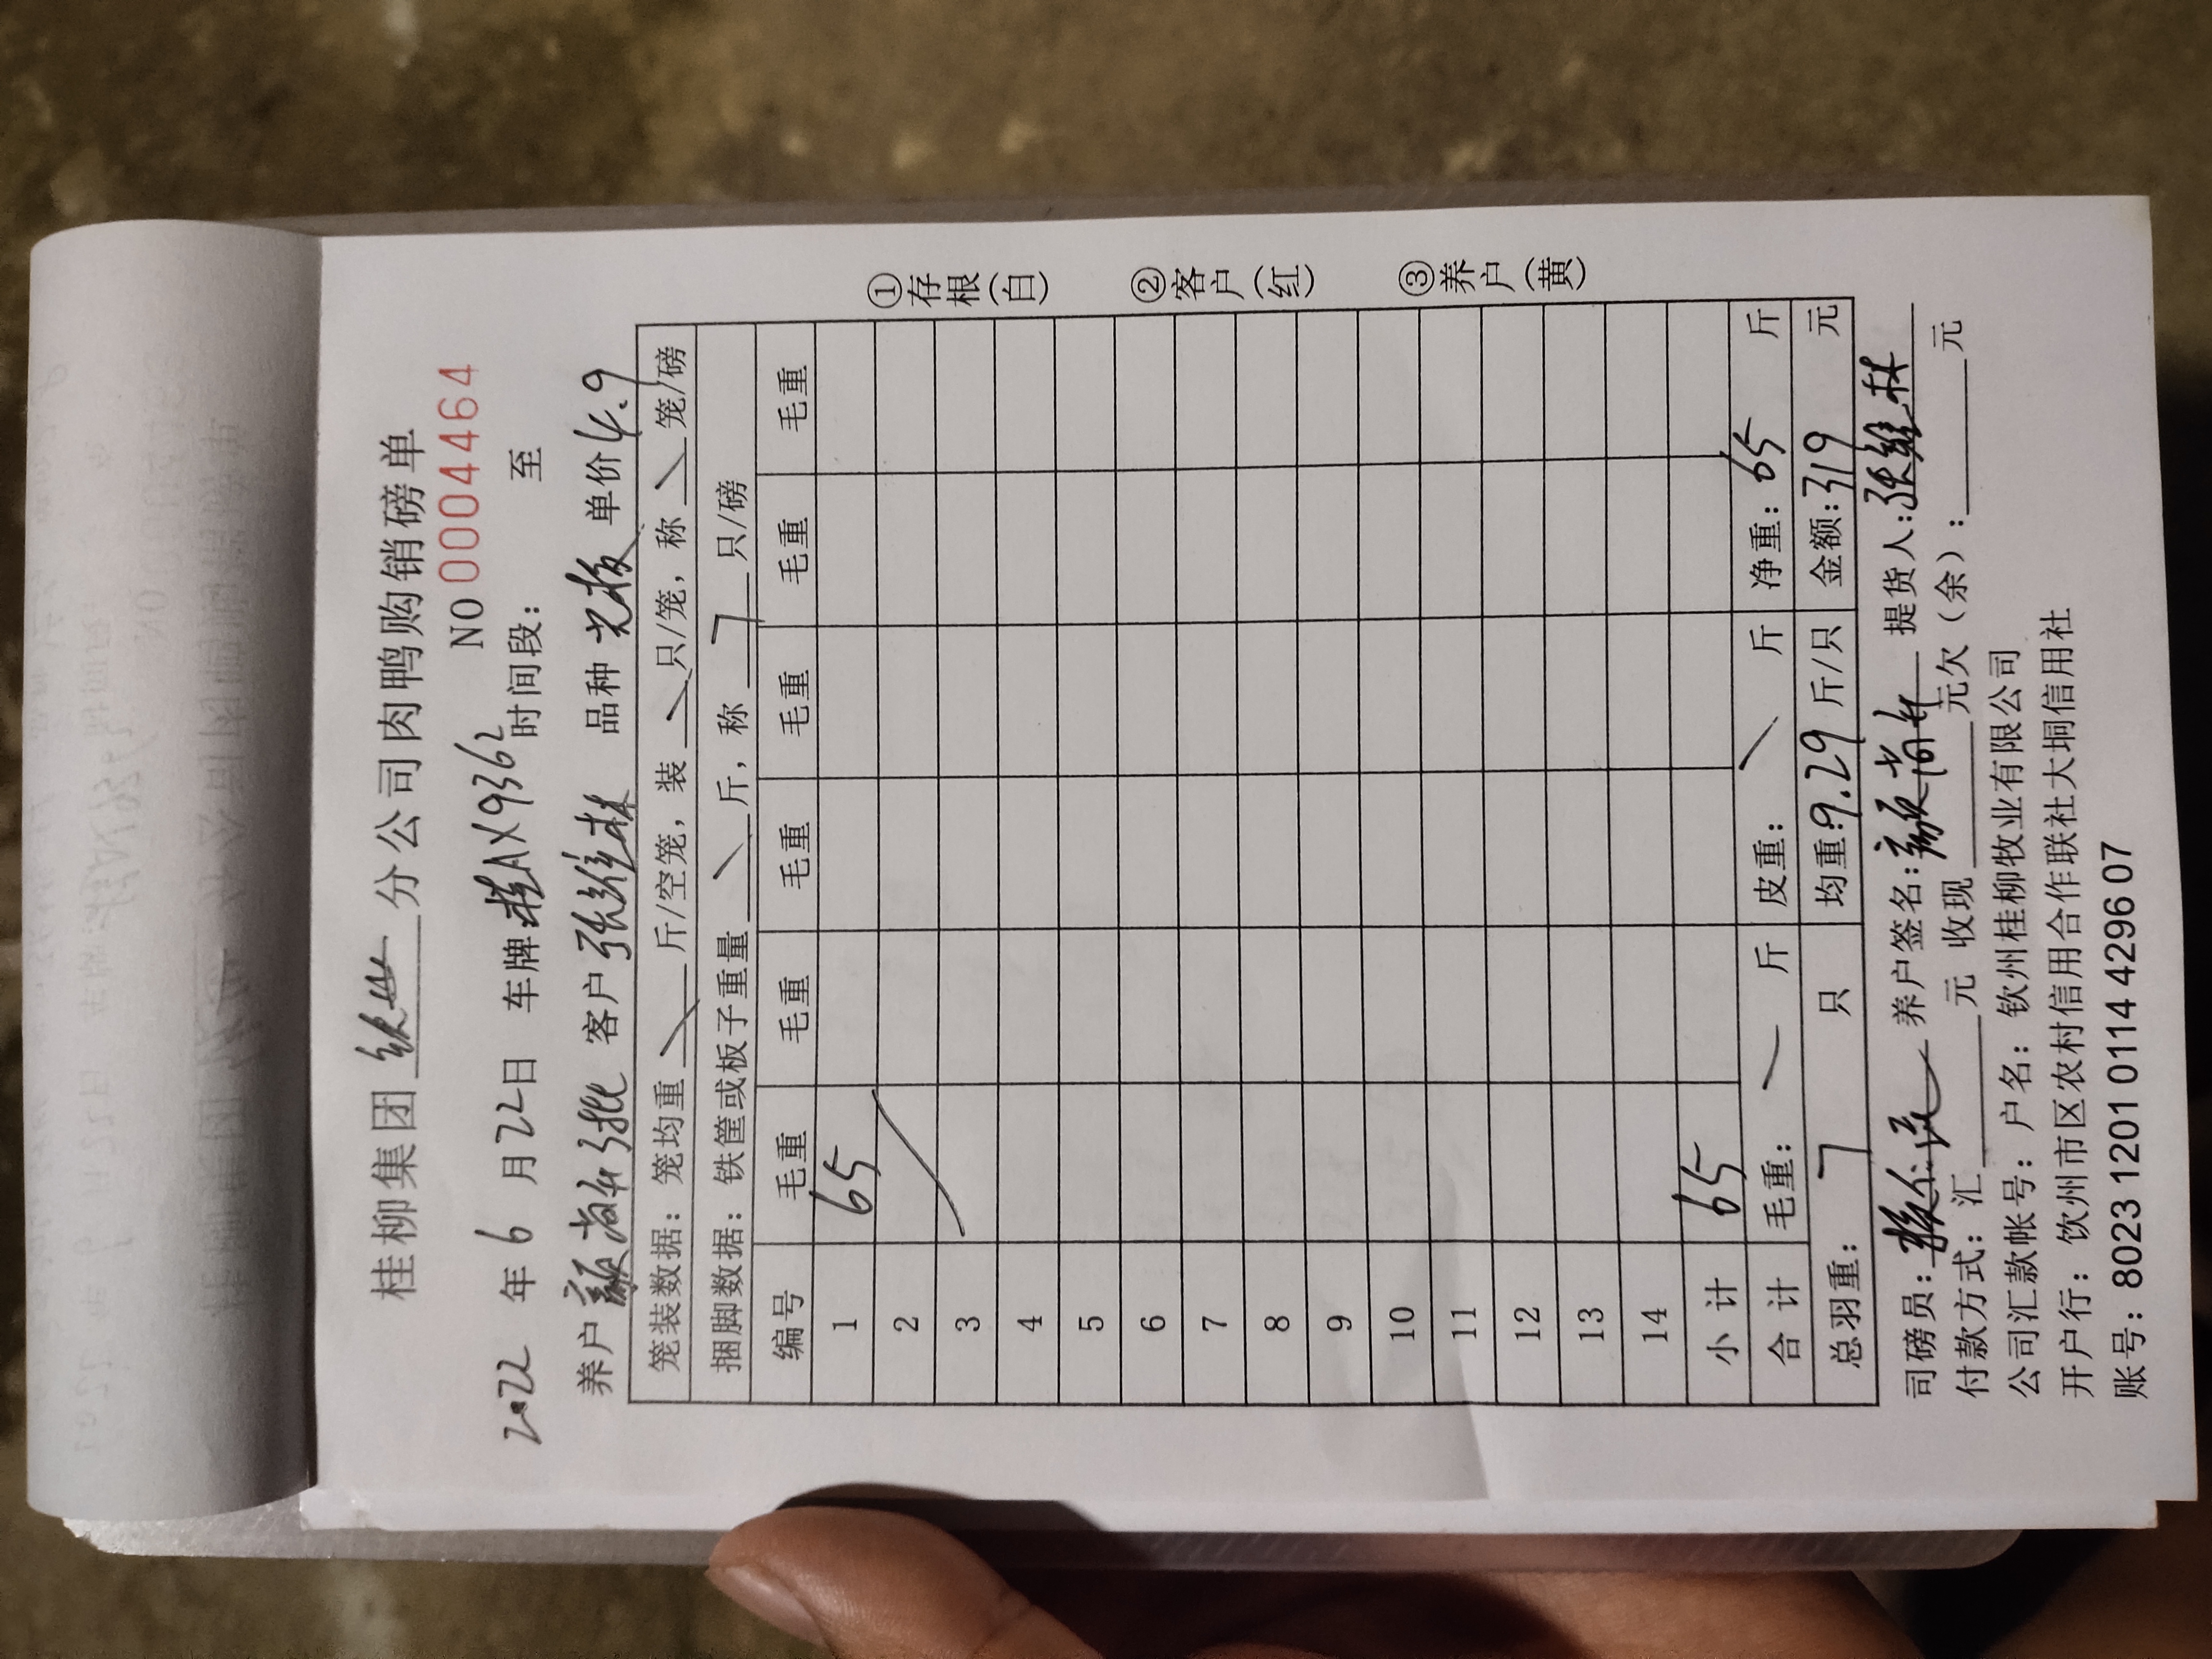 桂柳集团 分公司肉鸭购销磅单
NO 0004464
2022 年 6 月 22 日 车牌 桂AX9362 时间段： 至
养户 3批 客户 张维林 品种 光板 单价 4.9
笼装数据：笼均重 斤/空笼，装 只/笼，称 笼/磅
捆脚数据：铁筐或板子重量 斤，称 7 只/磅
编号 毛重 毛重 毛重 毛重 毛重 毛重
1 65
2
3
4
5
6
7
8
9
10
11
12
13
14
小计 65
合计 毛重： 斤 皮重： 斤 净重：65 斤
总羽重： 7 只 均重：9.29 斤/只 金额：319 元
司磅员： 养户签名： 提货人：张维林
付款方式：汇 元 收现 元欠（余）： 元
公司汇款帐号：户名：钦州桂柳牧业有限公司
开户行：钦州市区农村信用合作联社大垌信用社
账号：8023 1201 0114 4296 07
①存根（白）
②客户（红）
③养户（黄）